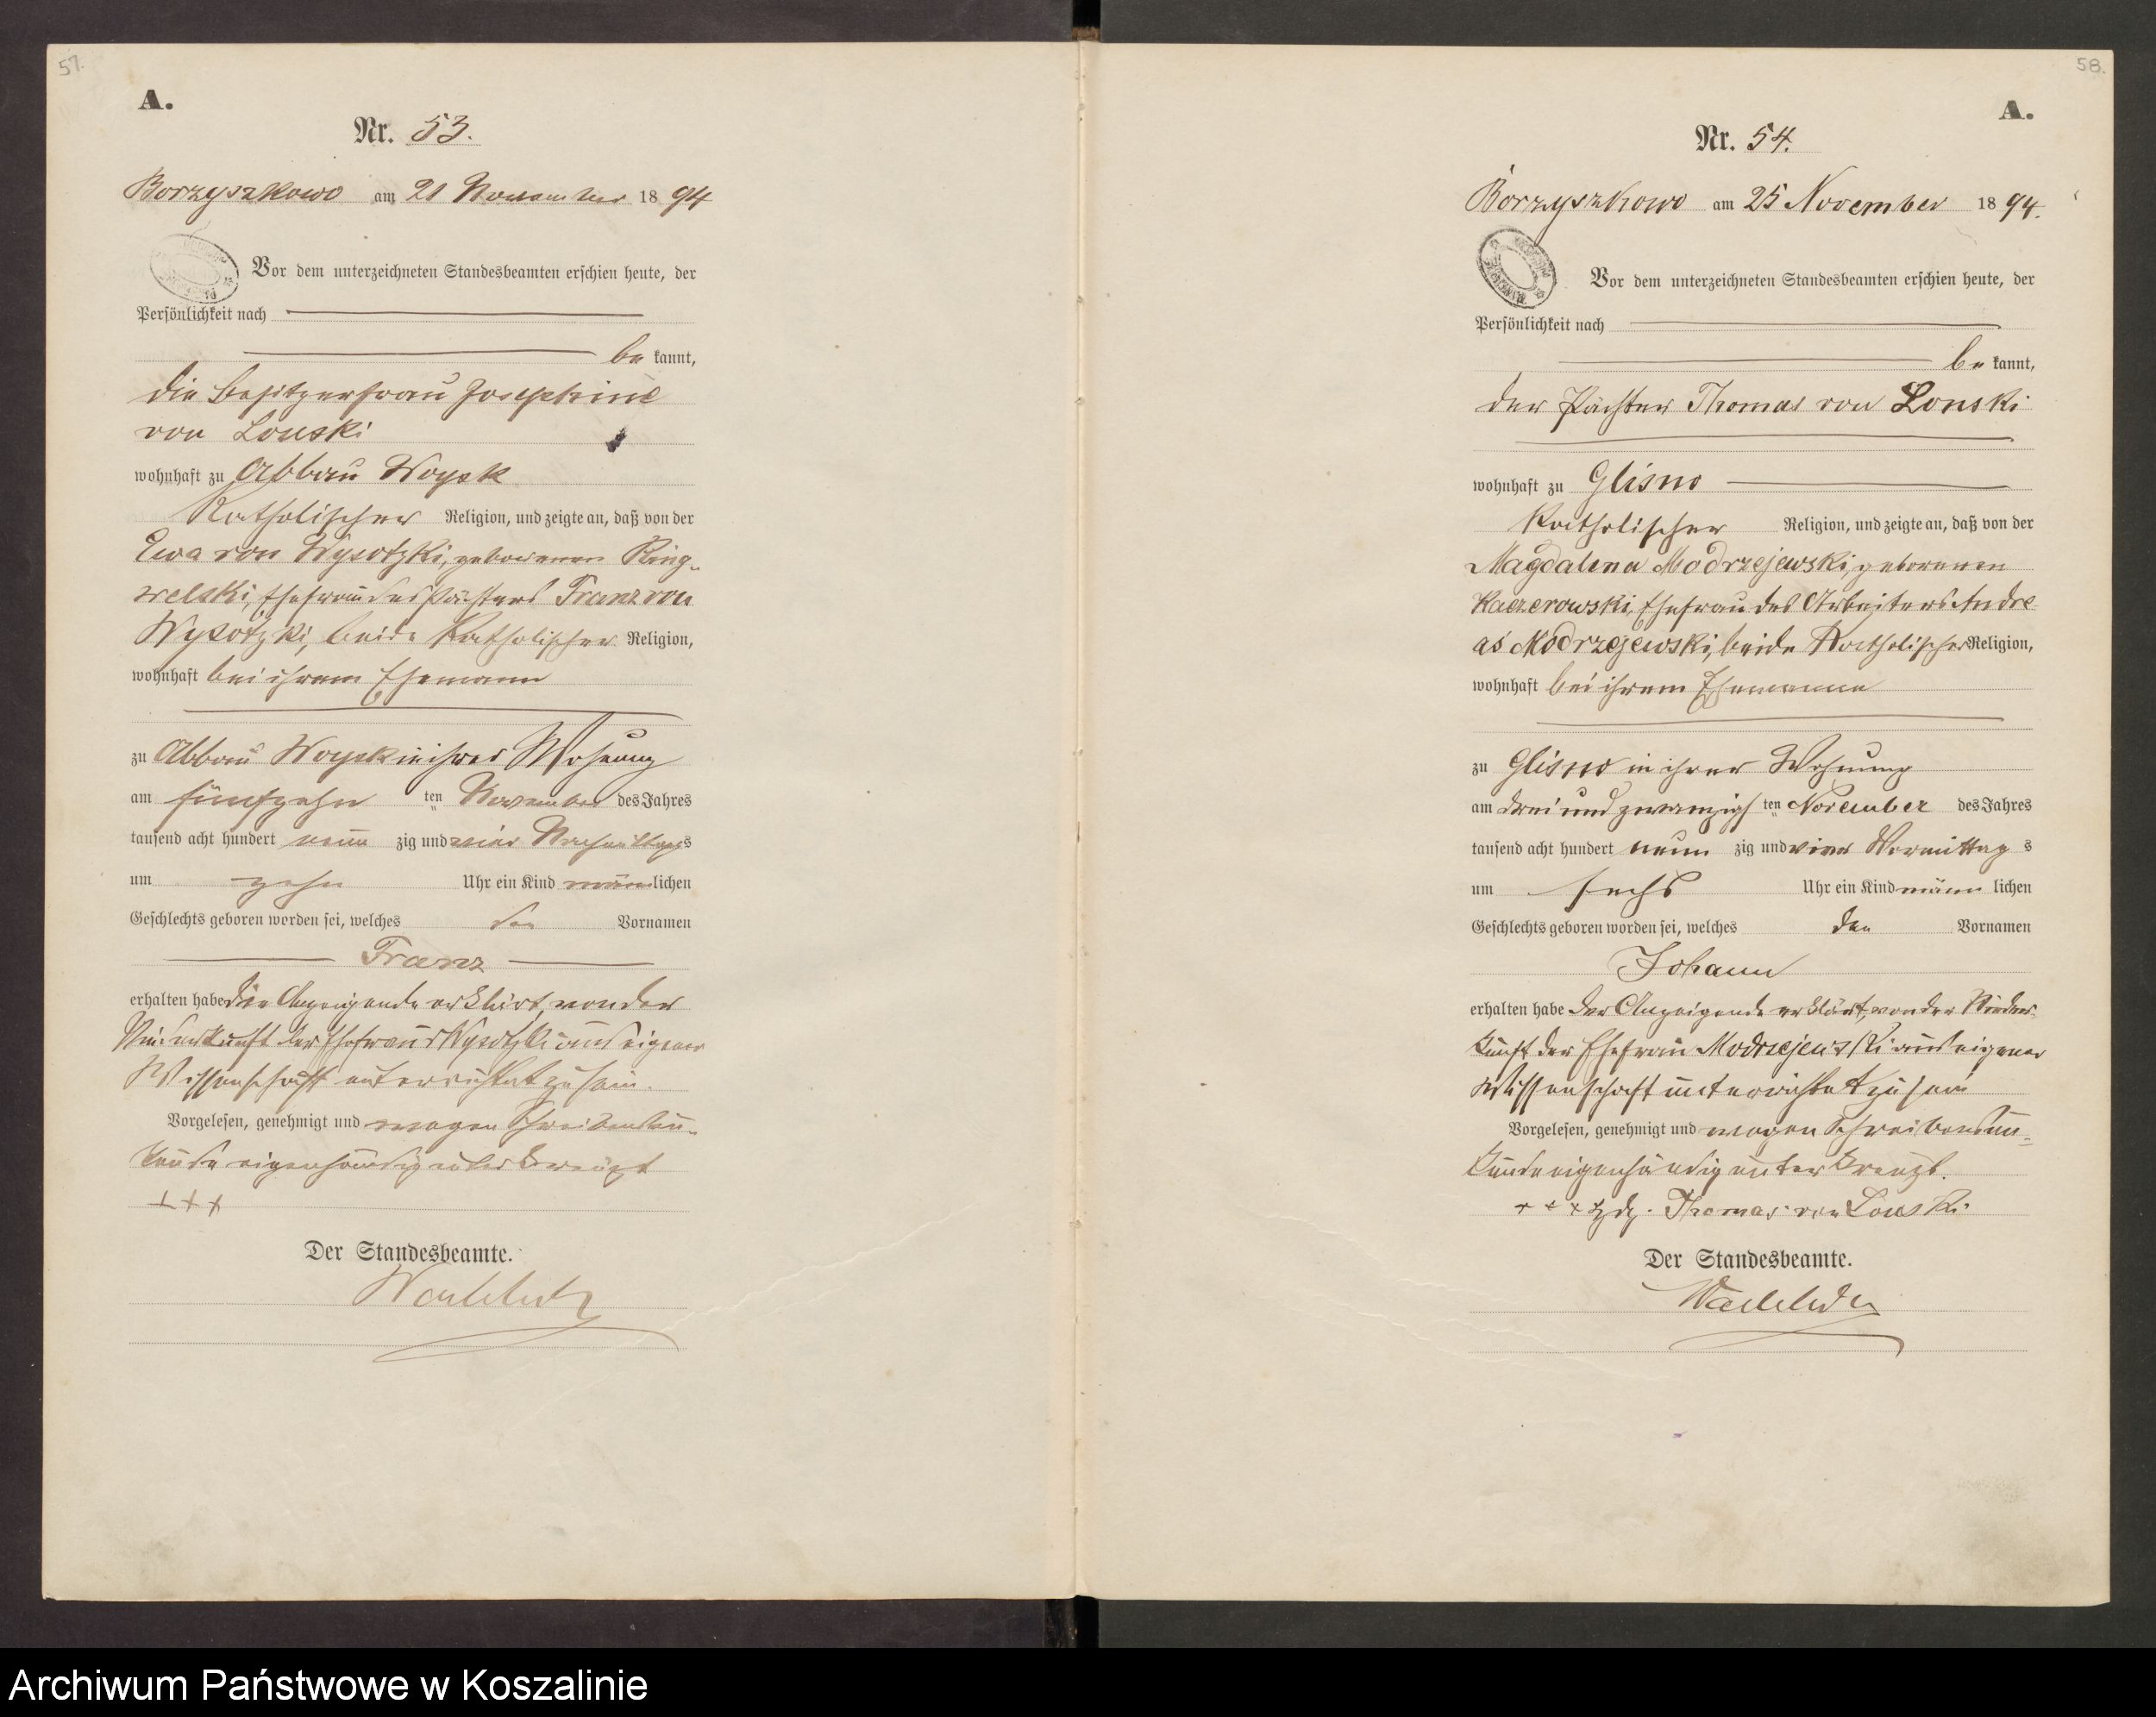 57.
A.
Nr. 53.
Borzyszkowo am 21 November 18 94
Vor dem unterzeichneten Standesbeamten erschien heute, der
Persönlichkeit nach
be kannt,
die Besitzerfrau Josephine
von Lonski
wohnhaft zu Abbau Woysk
Katholischer Religion, und zeigte an, daß von der
Ewa von Wysotzki, geborenen Ring-
welski, Ehefrau des Pächters Franz von
Wysotzki, beide Katholischer Religion,
wohnhaft bei ihrem Ehemann
zu Abbau Woysk in ihrer Wohnung
am fünfzehn ten November des Jahres
tausend acht hundert neun zig und vier Nachmittags
um zehn Uhr ein Kind männlichen
Geschlechts geboren worden sei, welches den Vornamen
Franz
erhalten habe die Anzeigende erklärt, von der
Niederkunft der Ehefrau Wysotzki aus eigener
Wissenschaft unterrichtet zu sein.
Vorgelesen, genehmigt und wegen Schreibensun-
kunde eigenhändig unterkreuzt
+++
Der Standesbeamte.
58.
A.
Nr. 54.
Borzyszkowo am 25 November 18 94.
Vor dem unterzeichneten Standesbeamten erschien heute, der
Persönlichkeit nach
be kannt,
der Pächter Thomas von Lonski
wohnhaft zu Glisno
Katholischer Religion, und zeigte an, daß von der
Magdalena Modrzejewski, geborenen
Kaczerowski, Ehefrau des Arbeiters Andre
as Modrzejewski, beide Katholischer Religion,
wohnhaft bei ihrem Ehemanne
zu Glisno in ihrer Wohnung
am drei und zwanzigs ten November des Jahres
tausend acht hundert neun zig und vier Vormittag s
um sechs Uhr ein Kind männ lichen
Geschlechts geboren worden sei, welches den Vornamen
Johann
erhalten habe der Anzeigende erklärt, von der Nieder-
kunft der Ehefrau Modrzejewski aus eigener
Wissenschaft unterrichtet zu sein
Vorgelesen, genehmigt und wegen Schreibensun-
kunde eigenhändig unterkreuzt.
+++ Hdz. Thomas von Lonski
Der Standesbeamte.
Archiwum Państwowe w Koszalinie